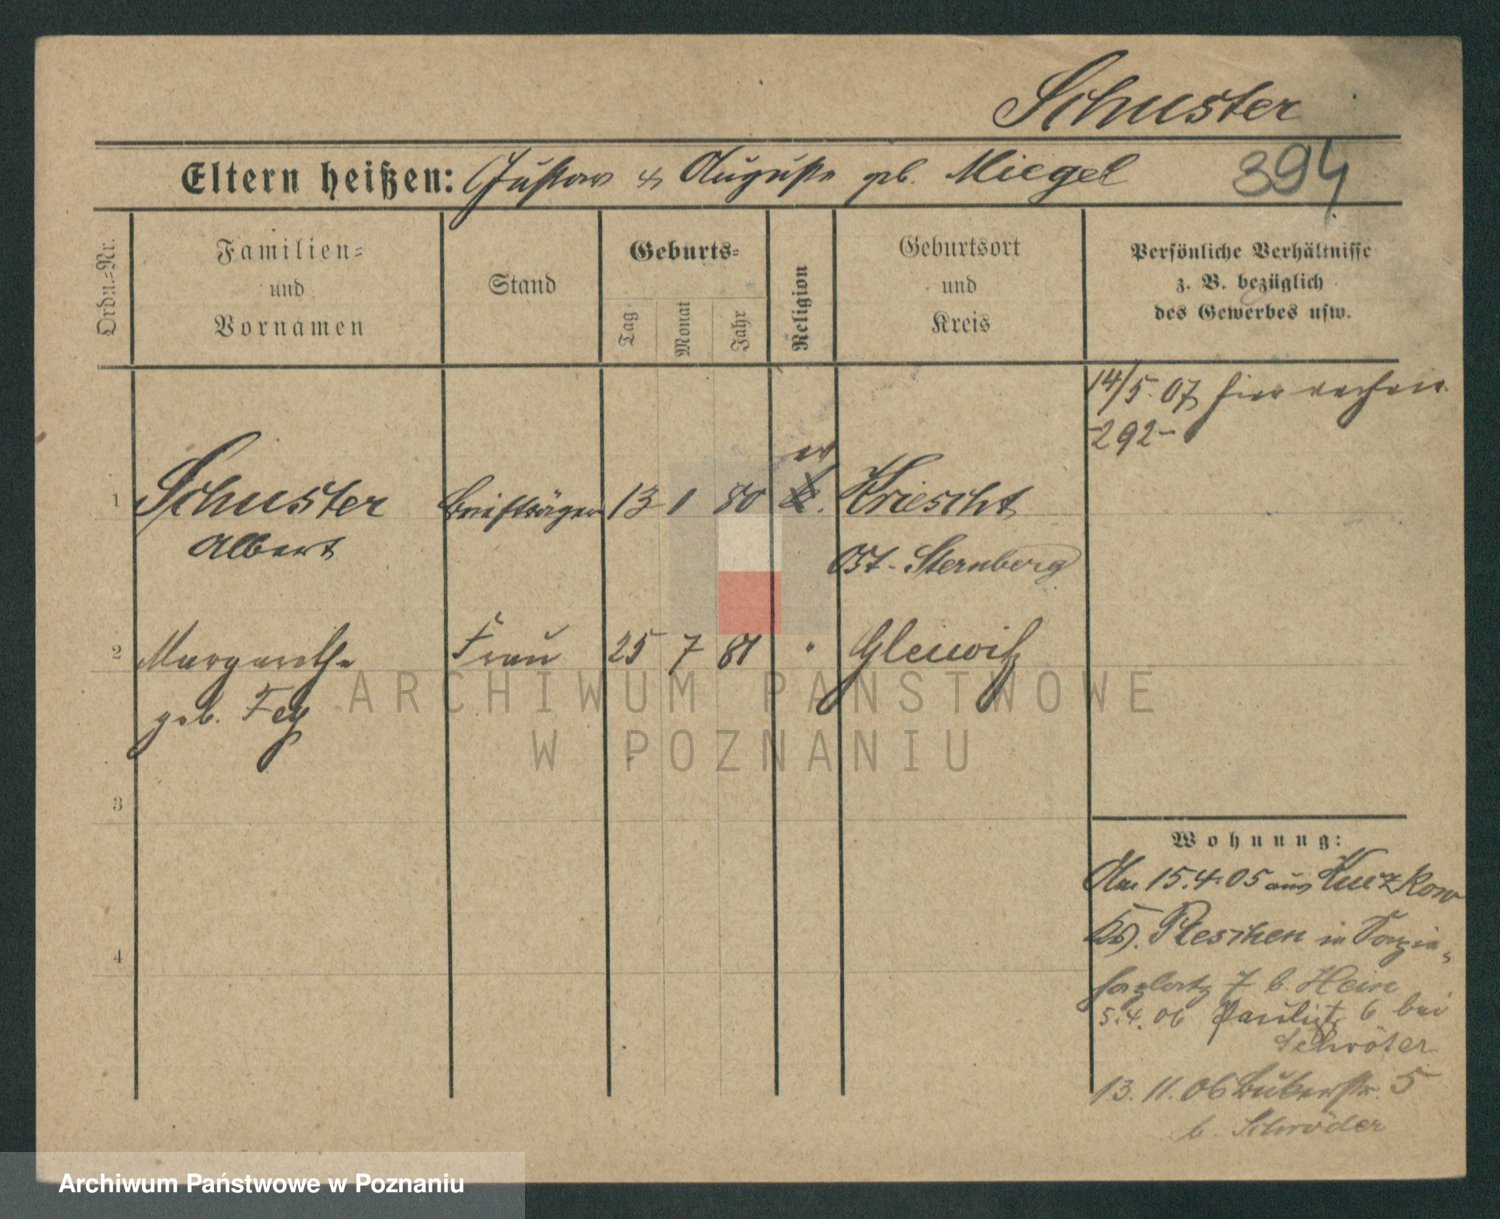 Schuster
Eltern heißen: Gustav & Auguste geb. Miegel 394
Ordn.-Nr.
Familien-
und
Vornamen
Stand
Geburts-
Tag
Monat
Jahr
Religion
Geburtsort
und
Kreis
Persönliche Verhältnisse
z. B. bezüglich
des Gewerbes usw.
14/5. 07 hier
-292-
ev
1 Schuster Briefträger 13 1 80 Kriescht
Albert Ost-Sternberg
2 Margarethe Frau 25 7 81 " Gleiwitz
geb. Fey
3
4
Wohnung:
Am 15.4.05 aus Kuczkow
Krs. Pleschen in
7 b. Hein
5.4.06 Paulistr. 6 bei
Schröter
13. 11. 06 Bukerstr. 5
b. Schröder
ARCHIWUM PAŃSTWOWE
W POZNANIU
Archiwum Państwowe w Poznaniu